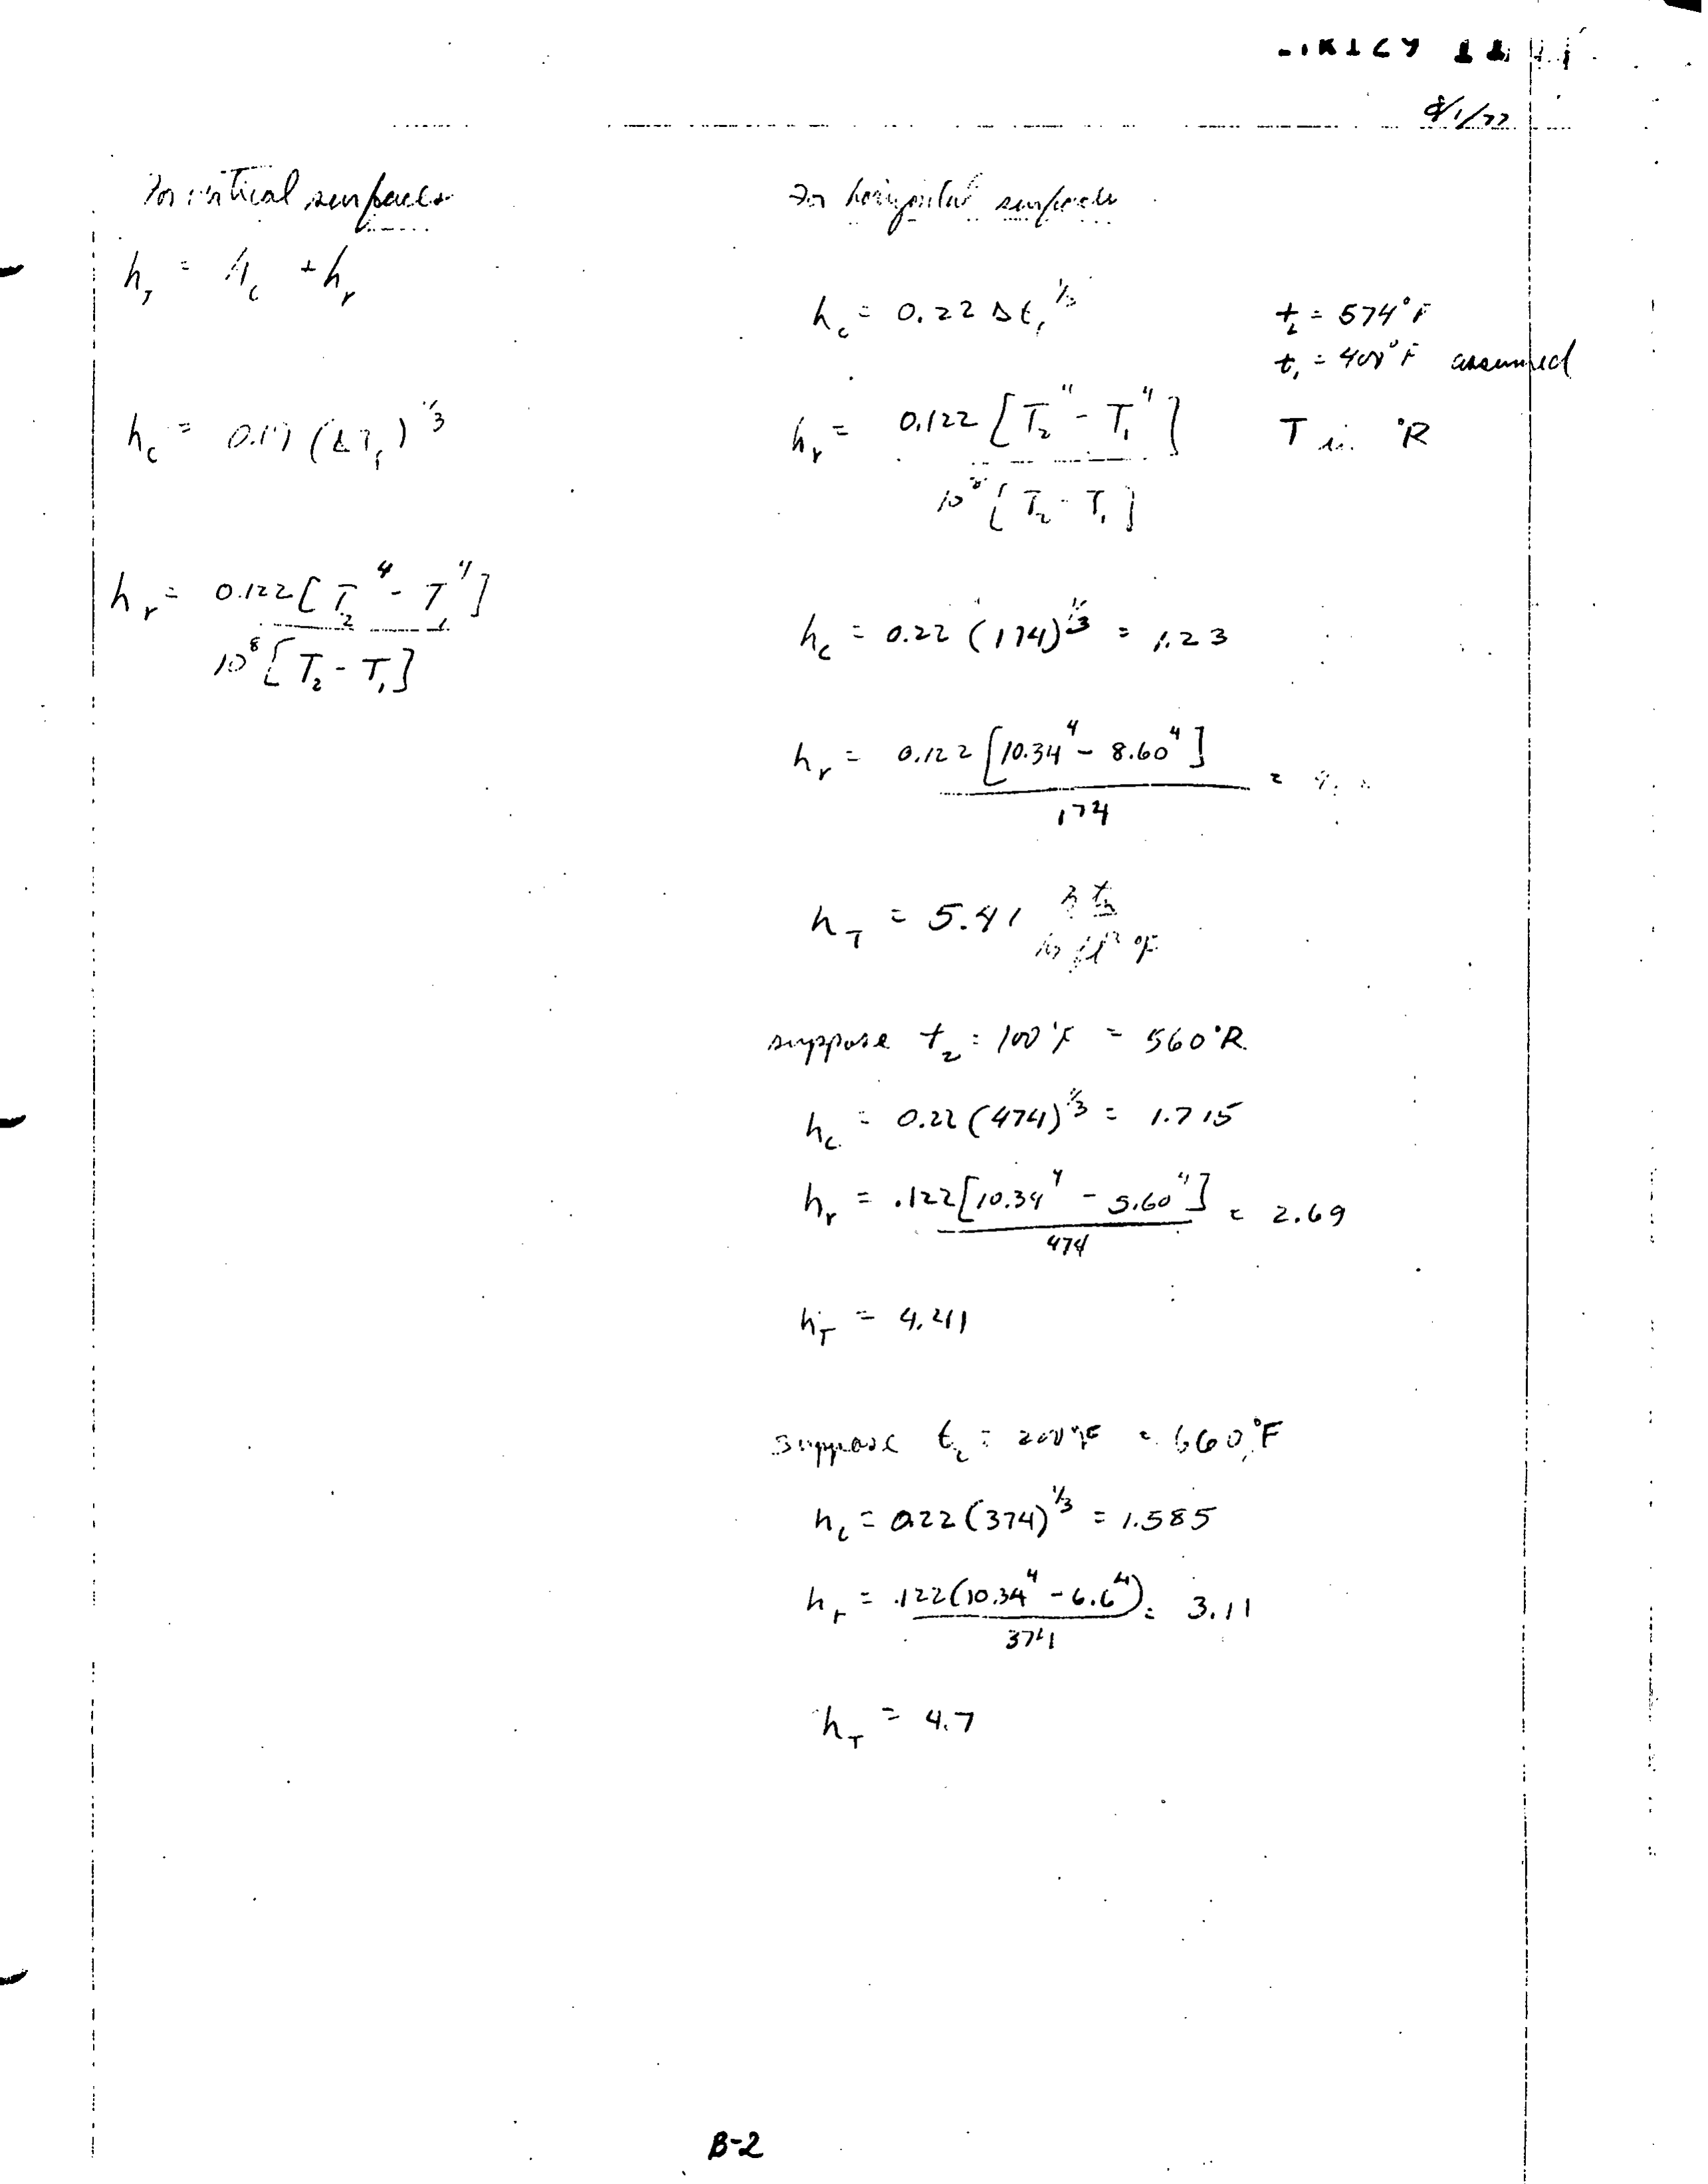 8/1/77
For vertical surfaces
h_T = h_c + h_r
h_c = 0.19 (ΔT_1)^1/3
h_r = 0.122 [T_2^4 - T_1^4]
10^8 [T_2 - T_1]
For horizontal surfaces
h_c = 0.22 Δt_1^1/3
t_2 = 574°F
t_1 = 400°F assumed
h_r = 0.122 [T_2^4 - T_1^4]
T in °R
10^8 [T_2 - T_1]
h_c = 0.22 (174)^1/3 = 1.23
h_r = 0.122 [10.34^4 - 8.60^4] =
174
h_T = 5.41 Btu
hr ft² °F
suppose t_2 = 100°F = 560°R
h_c = 0.22 (474)^1/3 = 1.715
h_r = .122 [10.34^4 - 5.60^4] = 2.69
474
h_T = 4.41
suppose t_2 = 200°F = 660°F
h_c = 0.22 (374)^1/3 = 1.585
h_r = .122 (10.34^4 - 6.6^4) = 3.11
374
h_T = 4.7
B-2